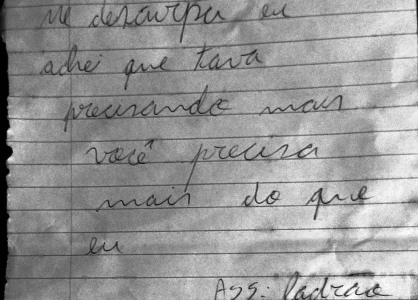 me desculpa eu
achei que tava
precisando mais
você precisa
mais do que
eu
Ass: Ladrão